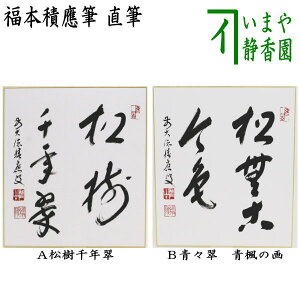 福本積應筆 直筆
いまや
静香園
松樹
千年翠
松無古
今色
A松樹千年翠
B青々翠 青楓の画